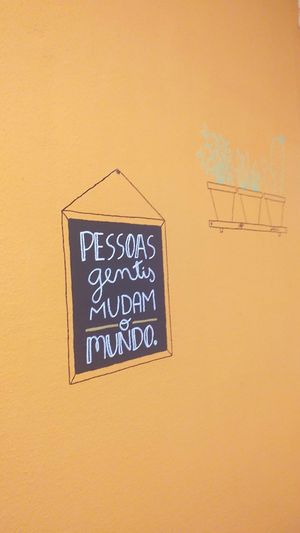 PESSOAS
gentis
MUDAM
o
MUNDO.